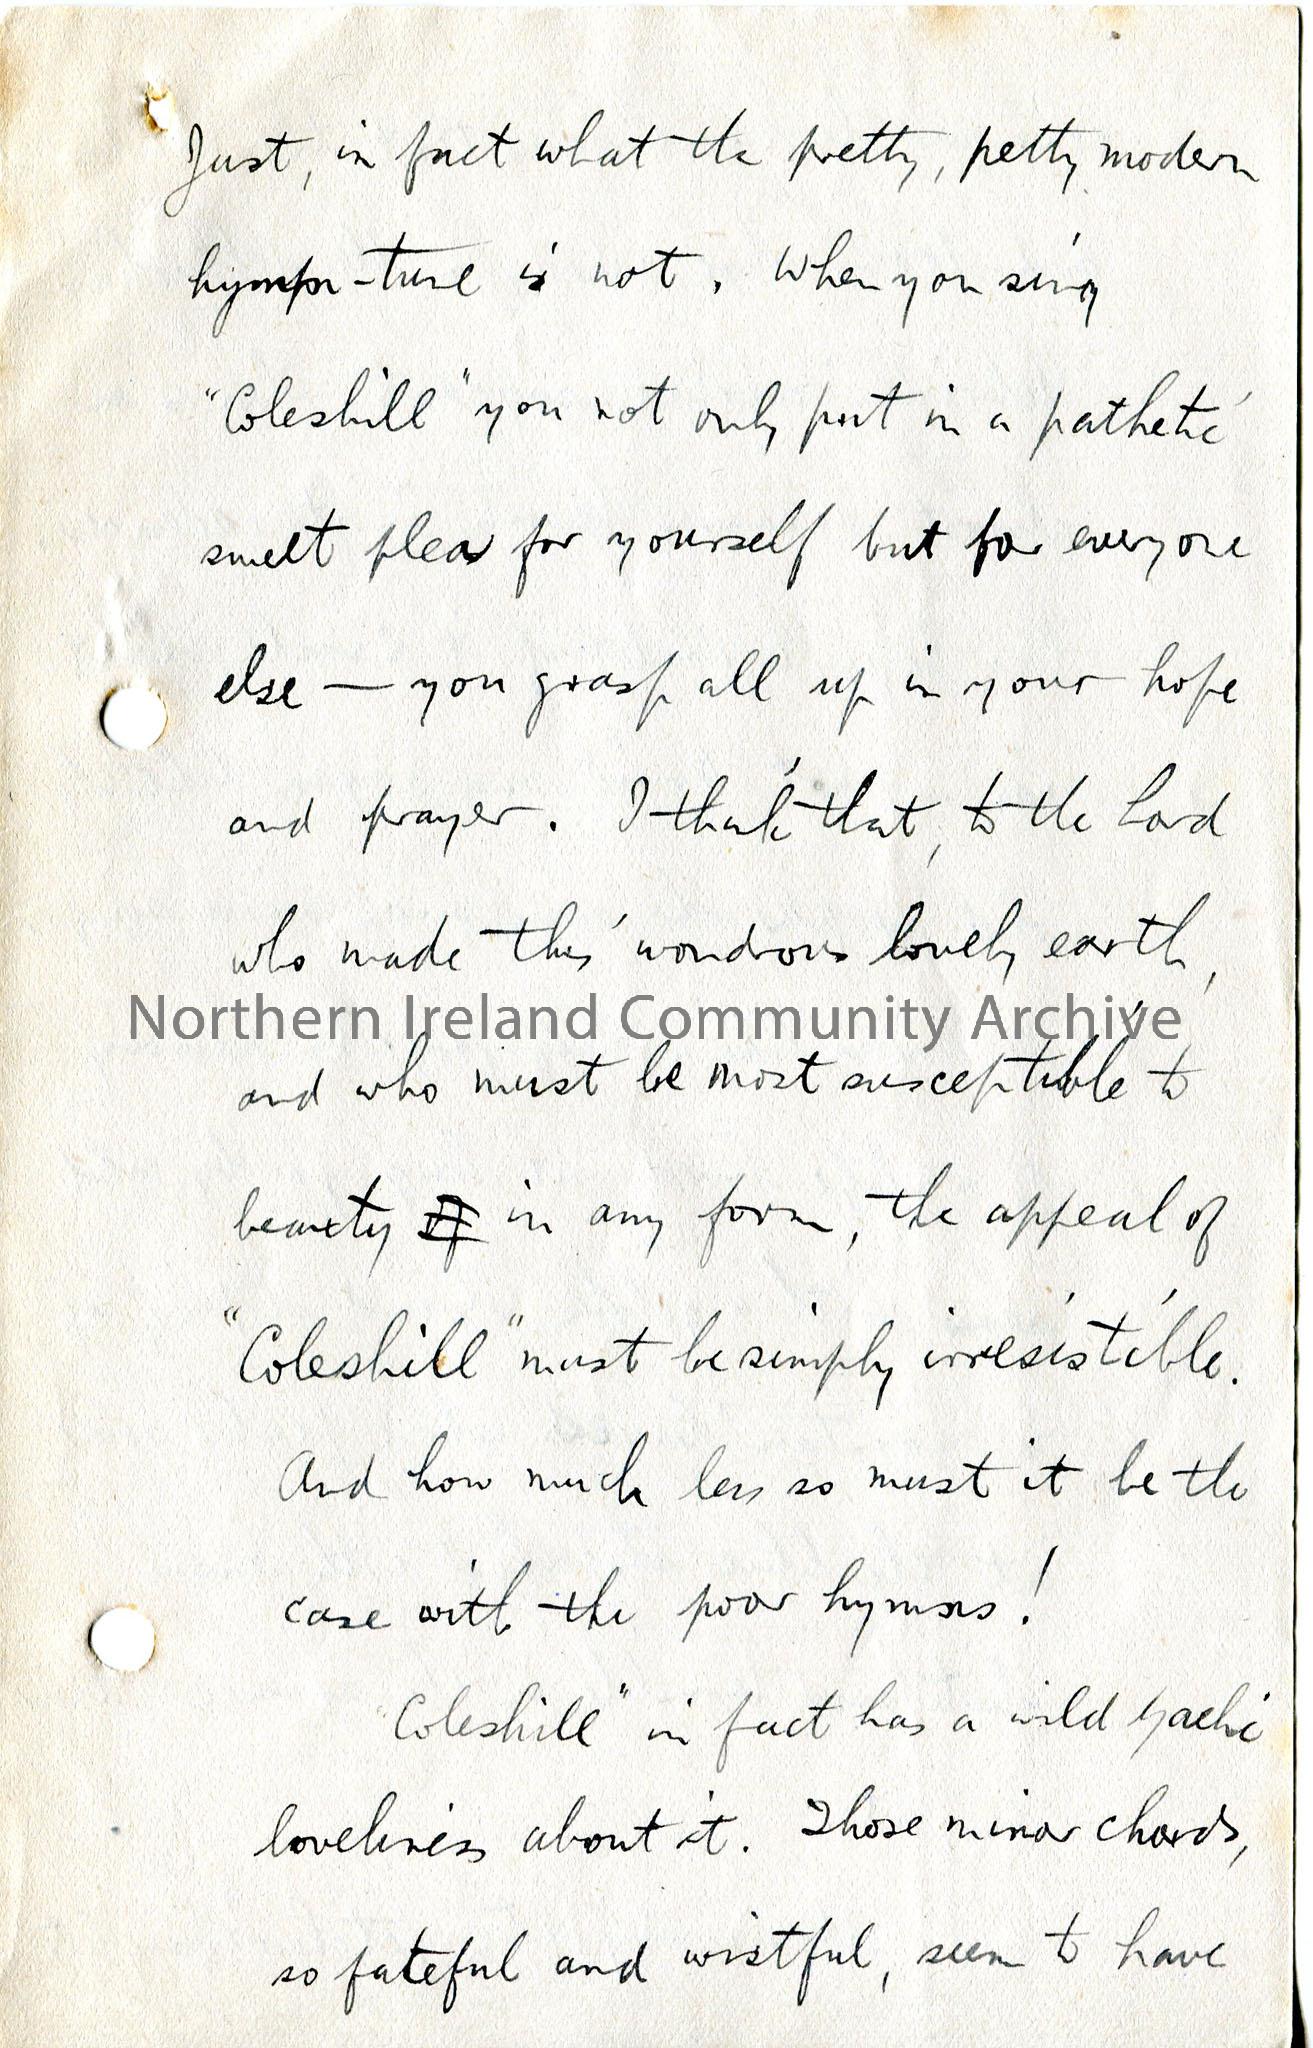 Just, in fact what the pretty, petty modern
hymn-tune is not. When you sing
"Coleshill" you not only put in a pathetic
sweet plea for yourself but for everyone
else — you grasp all up in your hope
and prayer. I think that, to the Lord
who made this wondrous lovely earth,
Northern Ireland Community Archive
and who must be most susceptible to
beauty in any form, the appeal of
"Coleshill" must be simply irresistible.
And how much less so must it be the
case with the poor hymns!
"Coleshill" in fact has a wild Gaelic
loveliness about it. Those minor chords,
so fateful and wistful, seem to have